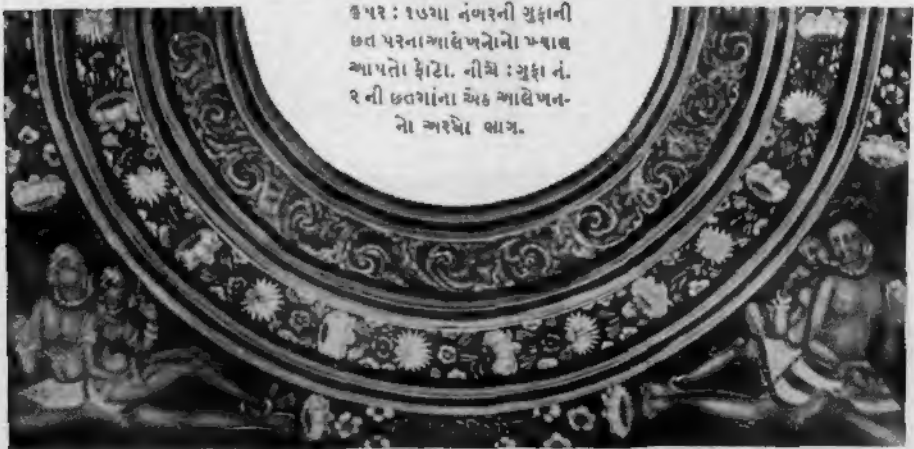 ઉપર : ૧૭મા નંબરની ગુફાની
છત પરના આલેખનોનો ખ્યાલ
આપતો ફોટો. નીચે : ગુફા નં.
૨ ની છતમાંના એક આલેખન-
નો અરધો ભાગ.